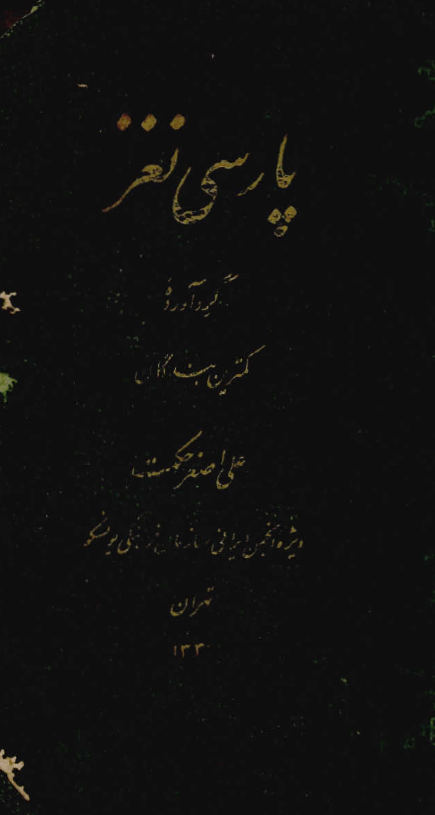 پارسی نغز
گردآوردهٔ
کمترین بندگان
علی اصغر حکمت
ویژه انجمن ایرانی سازمان فرهنگی یونسکو
تهران
۱۳۳۰